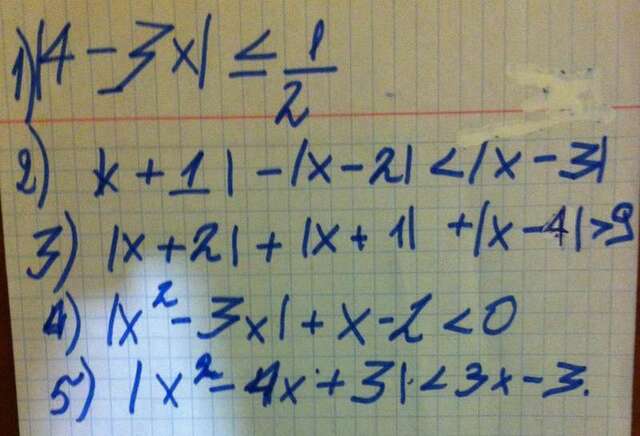 1) |4 - 3x| ≤ 1/2
2) |x + 1| - |x - 2| < |x - 3|
3) |x + 2| + |x + 1| + |x - 4| > 9
4) |x² - 3x| + x - 2 < 0
5) |x² - 4x + 3| < 3x - 3.